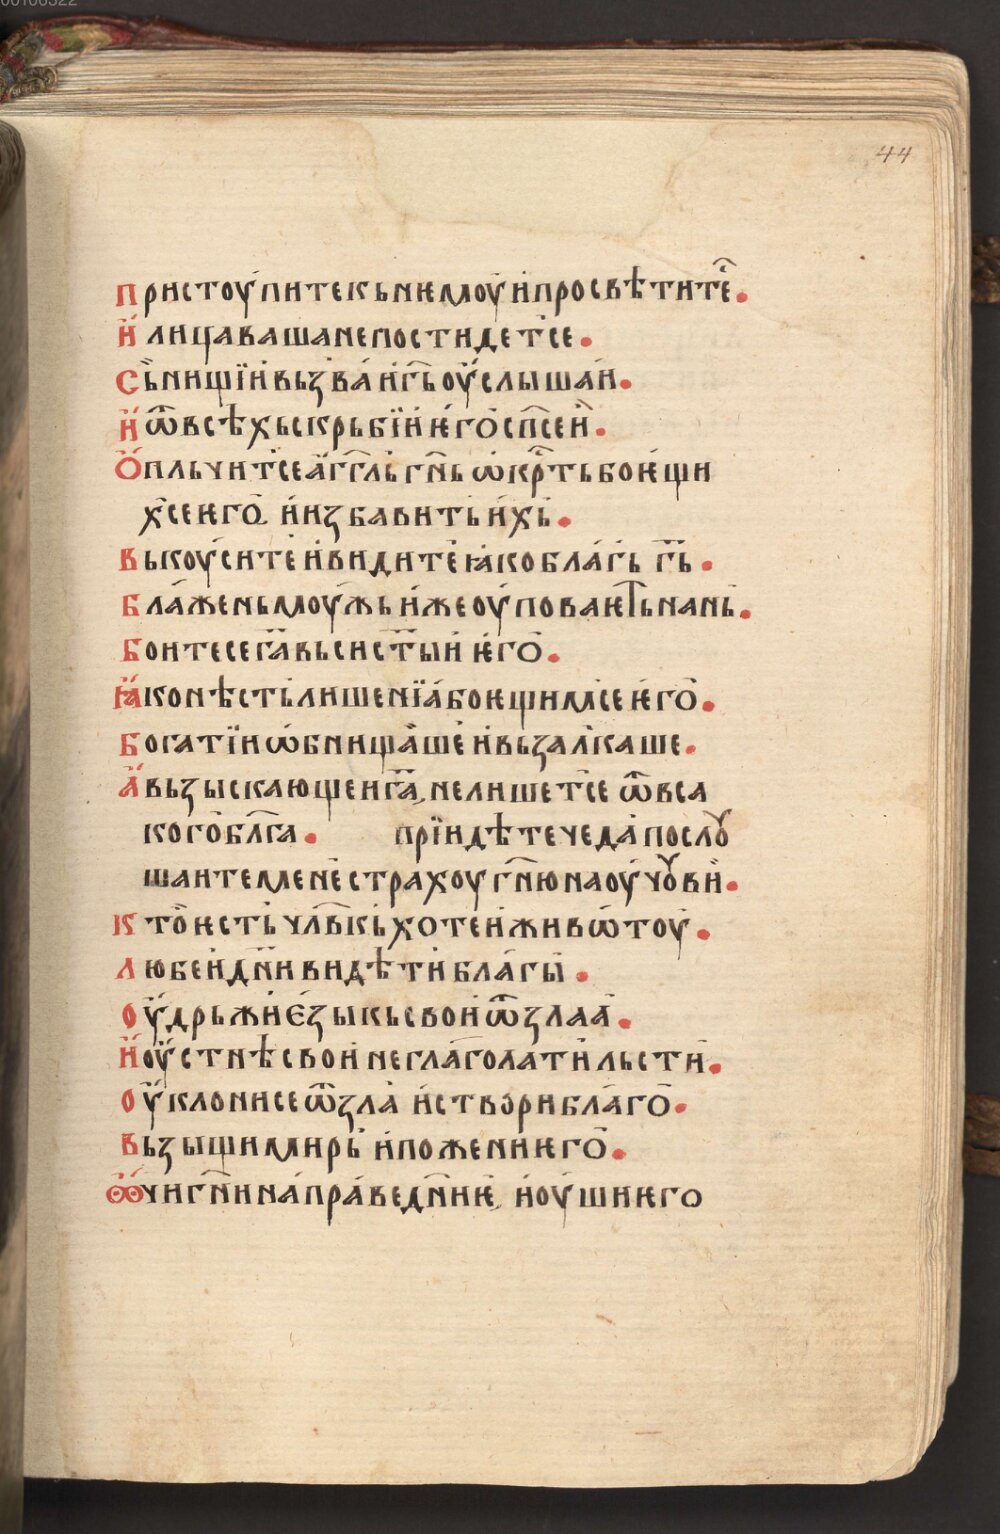 00106322
44
пристоу́пите кь нѥмоу̀ и҆ просвѣтите̑с.
И҆ лица ваша не постидет҇се.
Съ̀ нищїи҆ вьзва́ и҆ г҃ь оу҆слыша и҆.
И҆ ѿ всѣхь скрьбїи҆ ѥ҆го̀ сп҃се и҆.
О҆пльчит҇се а҆гг҃ль г҃нь ѡ҆кр҇ть боѥщи
х҇се ѥго̀, и҆ избавить и҆хь.
Вькоу́сите и҆ видите ꙗ҆ко бла́гь г҃ь.
Бла́жень моу́жь и҆же оу҆поваѥть на нь.
Боите се г҃а вьси ст҃ыи҆ ѥ҆го̀.
Ꙗ҆ко нѣсть лишенїа҆ боѥщим҇се ѥ҆го̀.
Богатїи ѡ҆бнища́ше и҆ вьзал́каше.
А҆ вьзыскающеи г҃а, не лишет҇се ѿ вса
кого̀ бл҃га. прїидѣте чеда̀ послꙋ
шаите менѐ страхоу г҃ню наоу́чꙋ ви҆.
Кто̀ ѥсть чл҃вкь хотеи҆ живѡ́тоу̀.
Любеи҆ дн҃и видѣти бла́гы.
Оу҆дрьжи є҆зыкь свои ѿ зла̀а.
И҆ оу҆стнѣ свои не глаго́лати льсти.
Оу҆клони се ѿ зла̀ и҆ створи бла́го̀.
Вьзыщи мирь и҆ пожени ѥго̀.
Ꙭ҆чи г҃ни на пра́ведн҃иѥ, и҆ оу́ши ѥго